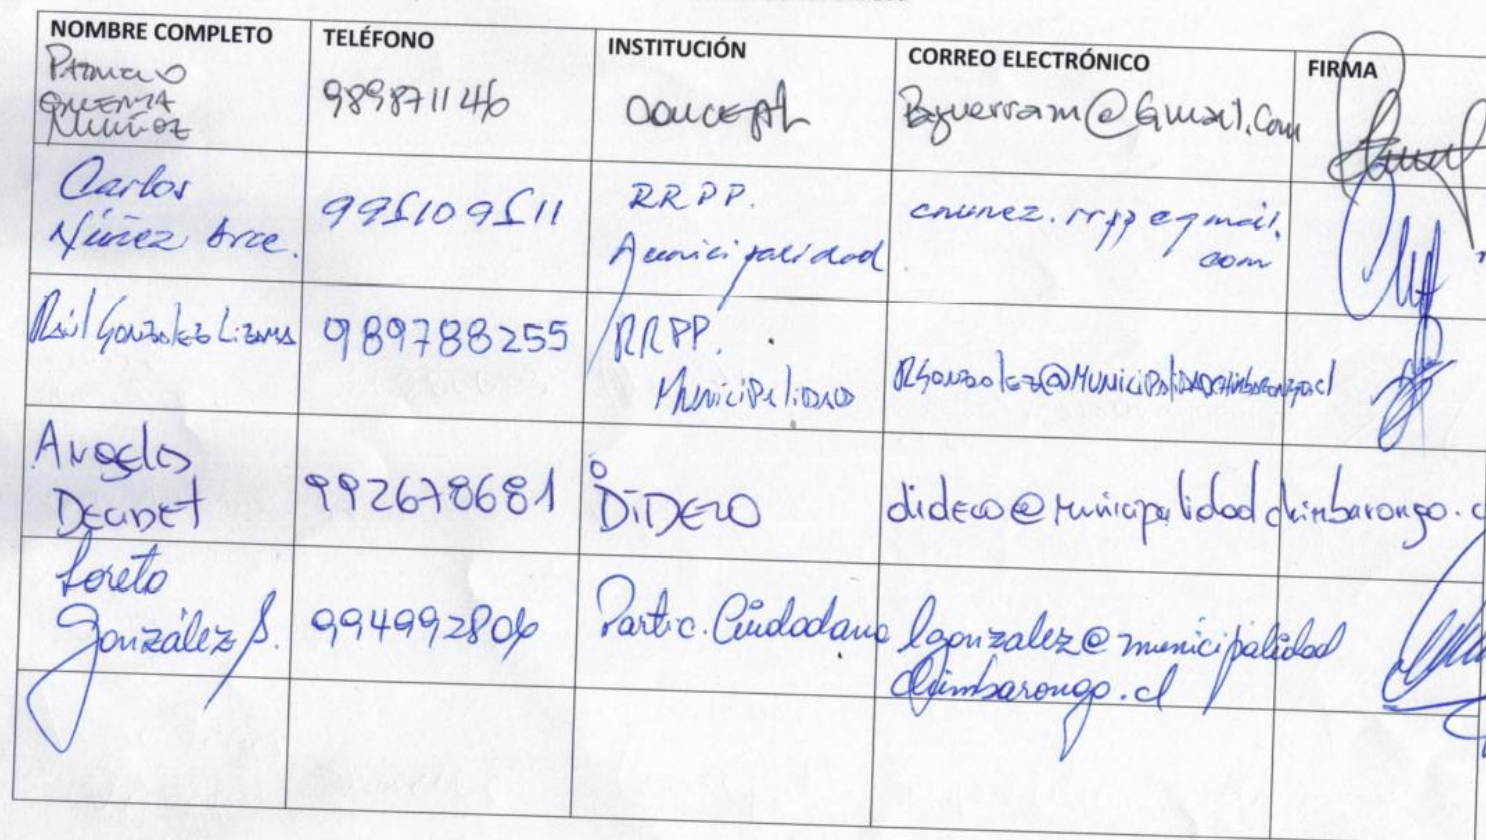 NOMBRE COMPLETO TELÉFONO INSTITUCIÓN CORREO ELECTRÓNICO FIRMA
Patricio
Muñoz 989871146 CONCEJAL @Gmail.com
Carlos
Núñez Arce. 995109511 RRPP.
Municipalidad cnunez.rrpp@gmail.
com
Raúl Gonzalez Lizama 989788255 RRPP.
Municipalidad RGonzalez@Municipalidadchimbarongo.cl
Angelo
992678681 DIDECO dideco@municipalidadchimbarongo.c
Loreto
González S. 994992806 Partic. Ciudadana lgonzalez@municipalidad
chimbarongo.cl